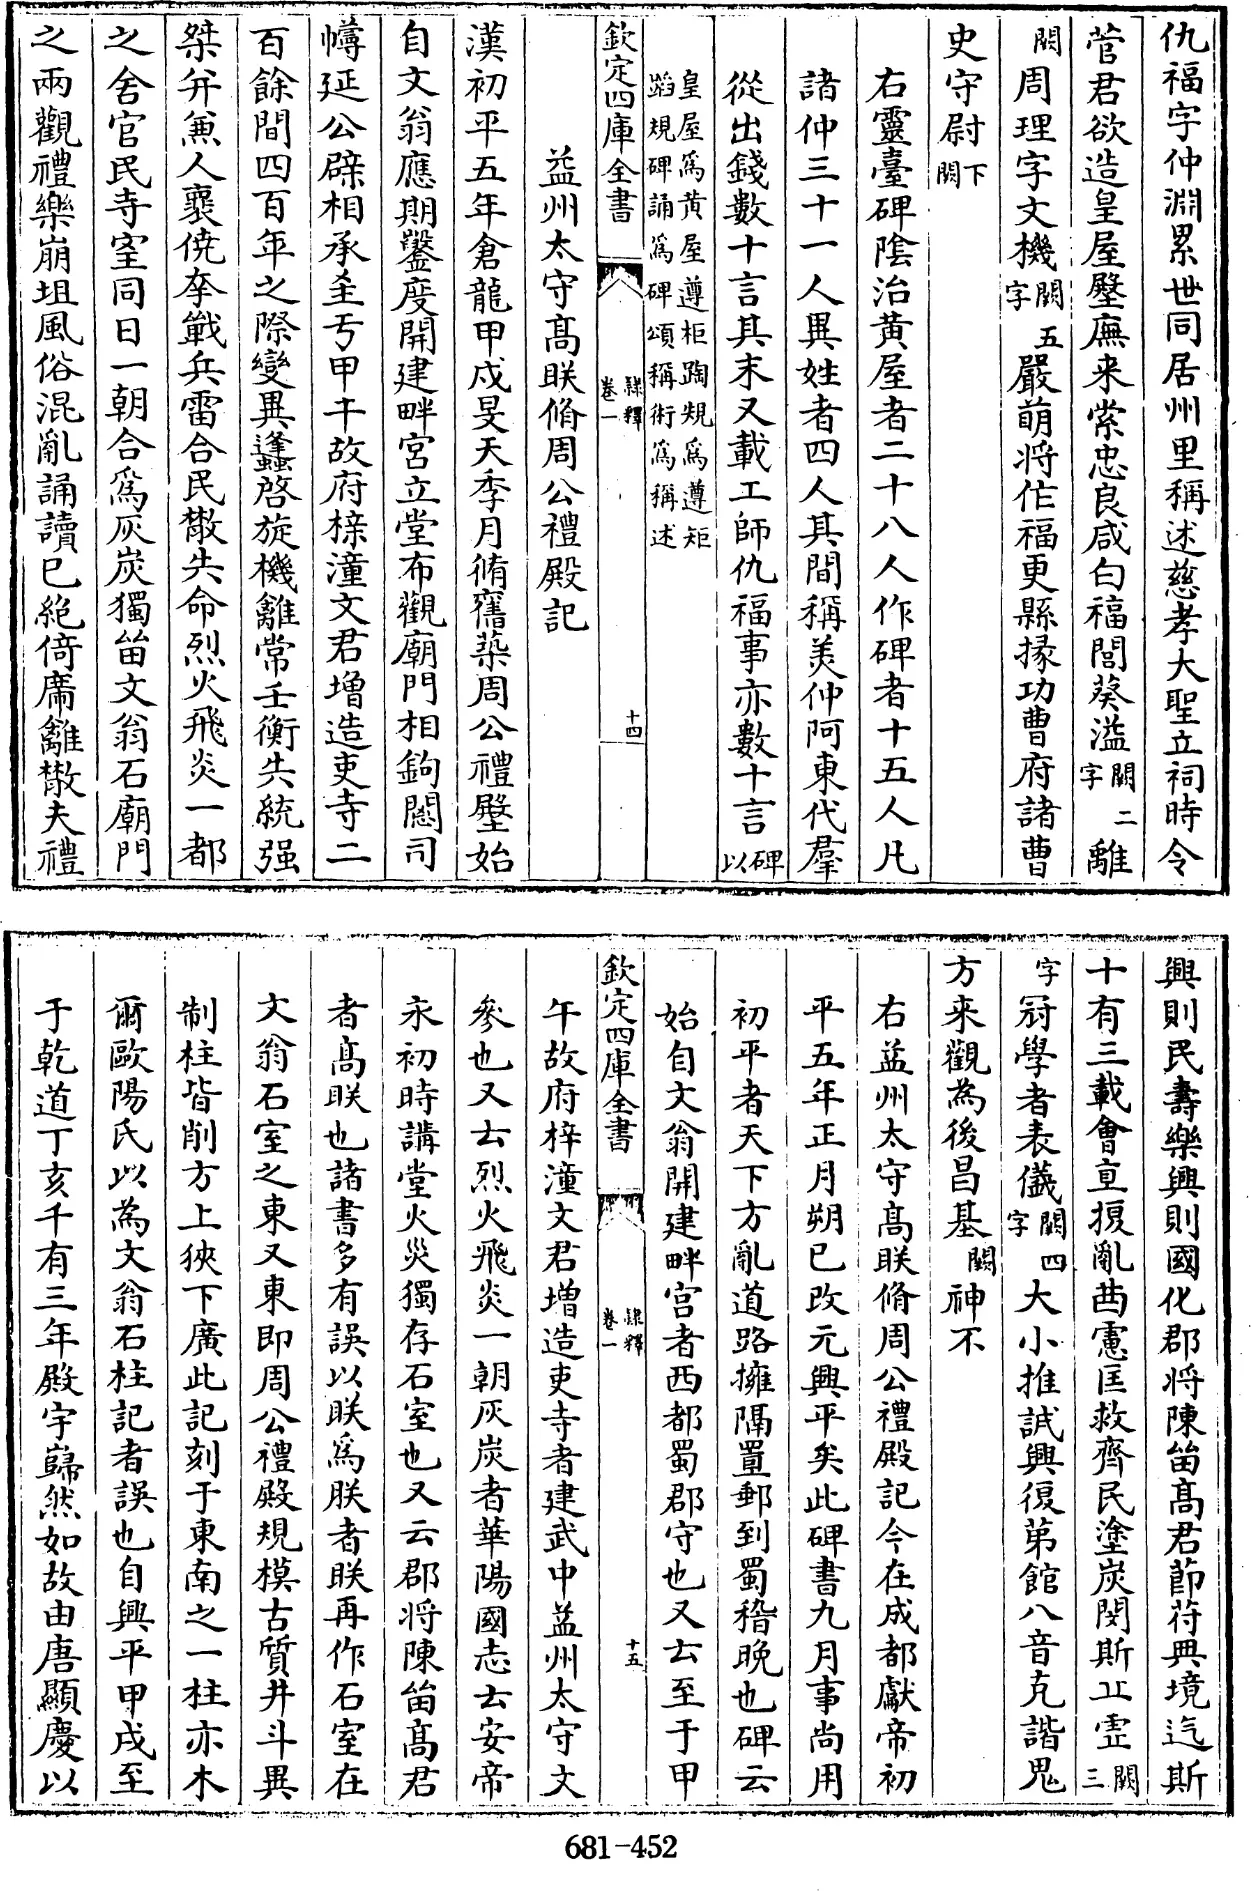 仇福字仲淵累世同居州里稱述慈孝大聖立祠時令
菅君欲造皇屋墼廡来索忠良咸白福閭葵溢闕二字離
闕周理字文機闕五字嚴萌將作福更縣掾功曹府諸曹
史守尉闕下
右靈臺碑陰治黄屋者二十八人作碑者十五人凡
諸仲三十一人異姓者四人其間稱羙仲阿東代羣
從出錢數十言其末又載工師仇福事亦數十言碑以
皇屋爲黄屋遵柜蹈䂓爲遵矩
蹈規碑誦爲碑頌稱術爲稱述
欽定四庫全書
隸釋
卷一
十四
益州太守髙眹脩周公禮殿記
漢初平五年倉龍甲戌旻天季月脩舊築周公禮墼始
自文翁應期鑿度開建畔宮立堂布觀廟門相鉤閟司
幬延公辟相承至亐甲午故府梓潼文君増造吏寺二
百餘間四百年之際變異蠭啓旋機離常玉衡失統强
桀并兼人襄僥夅戰兵雷合民散失命烈火飛炎一都
之舍官民寺室同日一朝合爲灰炭獨畱文翁石廟門
之兩觀禮樂崩坥風俗混亂誦讀已絶倚席離散夫禮
興則民壽樂興則國化郡将陳畱髙君節苻典境迄斯
十有三載會直擾亂茜慮匡救齊民塗炭閔斯丘霊闕三
字冠學者表儀闕四字大小推誠興復第館八音克諧鬼
方来觀為後昌基闕神不
右益州太守髙眹脩周公禮殿記今在成都獻帝初
平五年正月朔已改元興平矣此碑書九月事尚用
初平者天下方亂道路擁隔置郵到蜀稽晚也碑云
始自文翁開建畔宫者西都蜀郡守也又去至于甲
欽定四庫全書
隸釋
卷一
十五
午故府梓潼文君増造吏寺者建武中益州太守文
參也又去烈火飛炎一朝灰炭者華陽國志去安帝
永初時講堂火災獨存石室也又云郡將陳畱髙君
者髙眹也諸書多有誤以眹爲朕者眹再作石室在
文翁石室之東又東即周公禮殿規模古質井斗異
制柱皆削方上狹下廣此記刻于東南之一柱亦木
爾歐陽氏以為文翁石柱記者誤也自興平甲戌至
于乾道丁亥千有三年殿宇巋然如故由唐顯慶以
681-452